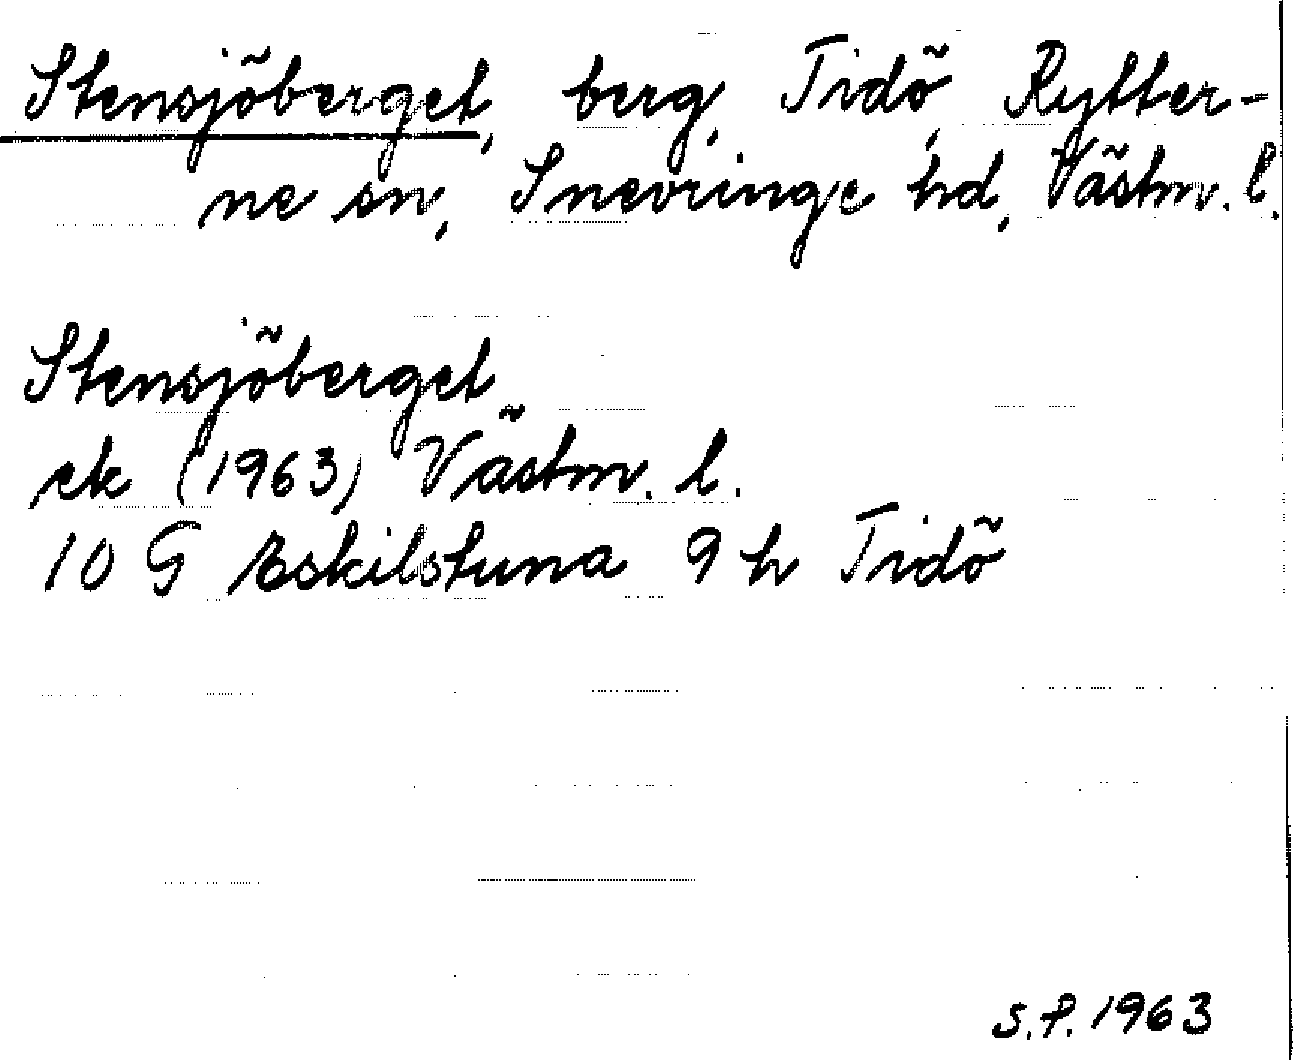 Stensjöberget, berg, Tidö, Rytter-
ne sn, Snevringe hd, Västm. l.
Stensjöberget
ek (1963) Västm. l.
10 G Eskilstuna 9 h Tidö
S.P. 1963